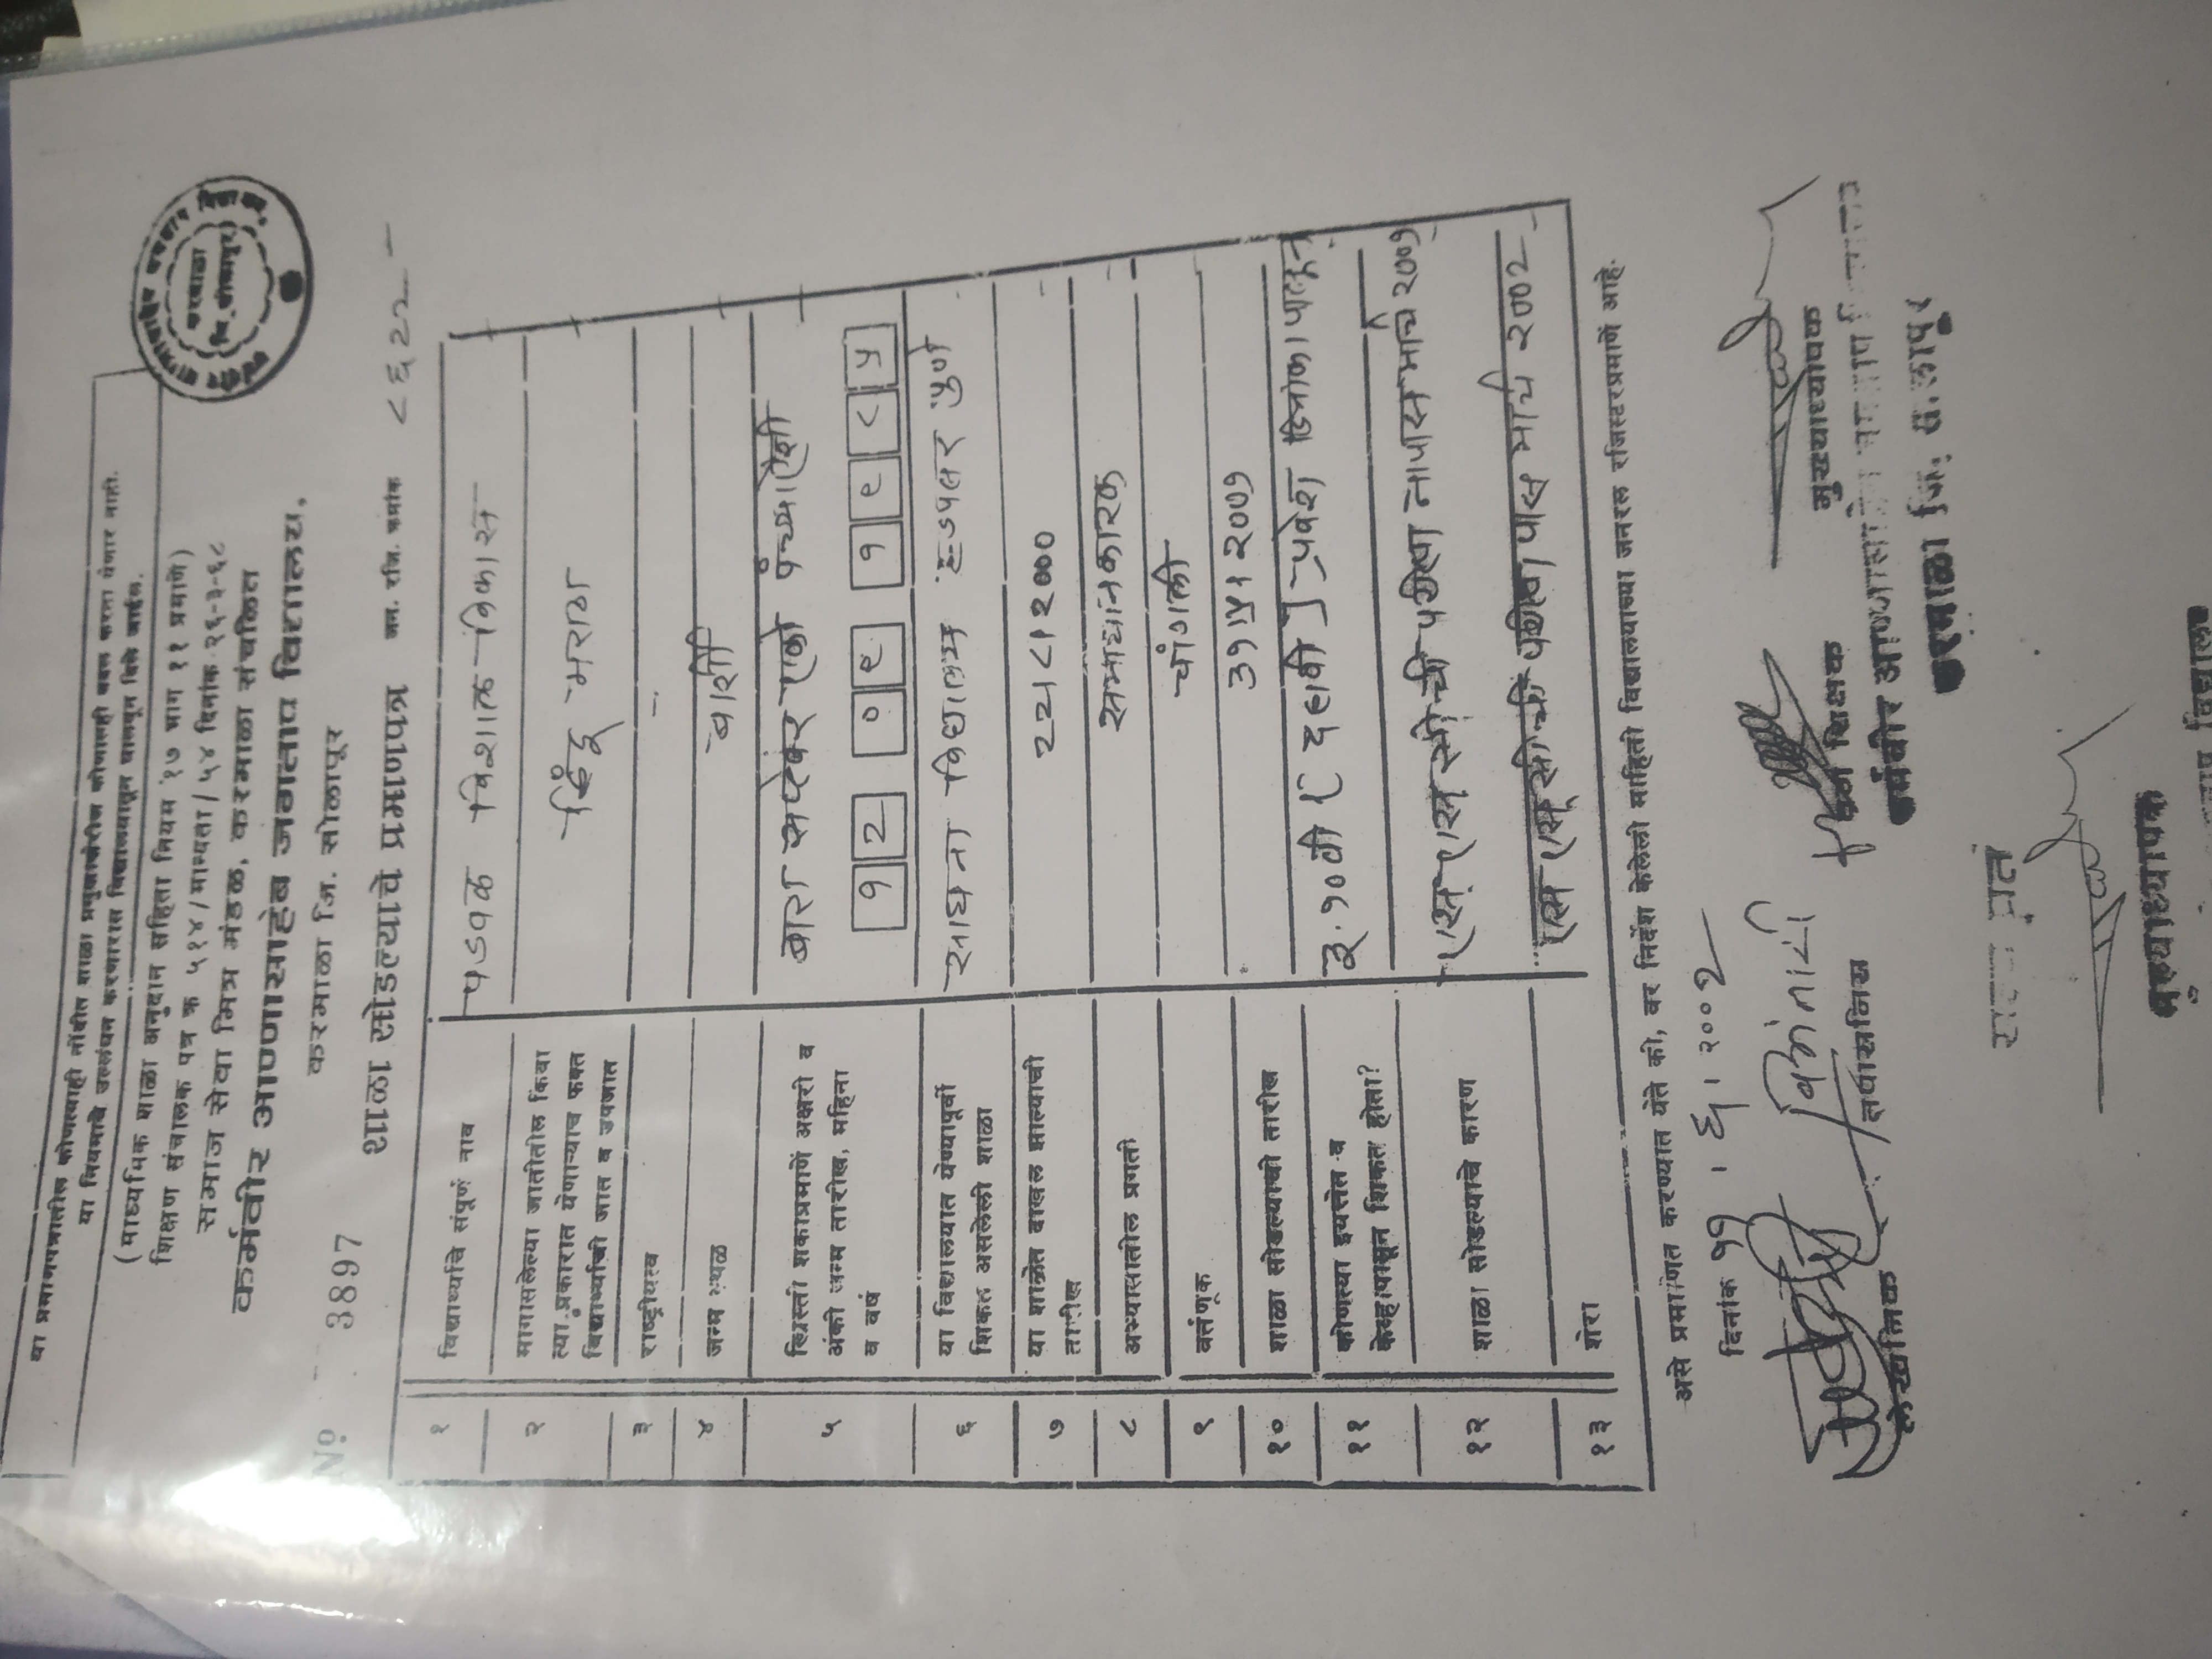 या प्रमाणपत्रातील कोणत्याही नोंदीत शाळा प्रमुखाखेरीज कोणालाही बदल करता येणार नाही.
या नियमाचे उल्लंघन करणारास विद्यालयामधून घालवून दिले जाईल.
(माध्यमिक शाळा अनुदान संहिता नियम १७ भाग ११ प्रमाणे)
शिक्षण संचालक पत्र क्र
समाज सेवा मित्र मंडळ, करमाळा संचलित
कर्मवीर आण्णासाहेब जगताप विद्यालय,
करमाळा जि. सोलापूर
No 3897
शाळा सोडल्याचे प्रमाणपत्र जन. रजि. क्रमांक ८६२२
१ विद्यार्थ्याचे संपूर्ण नाव पडवळ विशाल विकास
२ मागासलेल्या जातीतील किंवा त्या प्रकारात येणाऱ्याच फक्त विद्यार्थ्याची जात व उपजात हिंदू मराठा
३ राष्ट्रीयत्व -
४ जन्म स्थळ बार्शी
५ ख्रिस्ती शकाप्रमाणें अक्षरी व अंकी जन्म तारीख, महिना व वर्ष बारा सप्टेंबर एकोणिसशे पंच्याऐंशी
१२ ०९ १९ ८५
६ या विद्यालयात येण्यापूर्वी शिकत असलेली शाळा साधना विद्यालय हडपसर पुणे
७ या शाळेत दाखल झाल्याची तारीख २२।८।२०००
८ अभ्यासातील प्रगती समाधानकारक
९ वर्तणूक चांगली
१० शाळा सोडल्याची तारीख ३१।५।२००१
११ कोणत्या इयत्तेत व केव्हांपासून शिकत होता? इ. १०वी [दहावी] प्रवेश दिनांका पासून
१२ शाळा सोडल्याचे कारण एस् एस् सी ची परीक्षा नापास मार्च २००१
१३ शेरा एस् एस् सी ची परीक्षा पास मार्च २००२
असे प्रमाणित करण्यात येते की, वर निर्देश केलेली माहिती विद्यालयाच्या जनरल रजिस्टरप्रमाणें आहे.
दिनांक ११ । ६ । २००२
लेखनिक तपासनिस वर्ग शिक्षक मुख्याध्यापक
कर्मवीर आण्णासाहेब जगताप विद्यालय
करमाळा जि. सोलापुर
मुख्याध्यापक